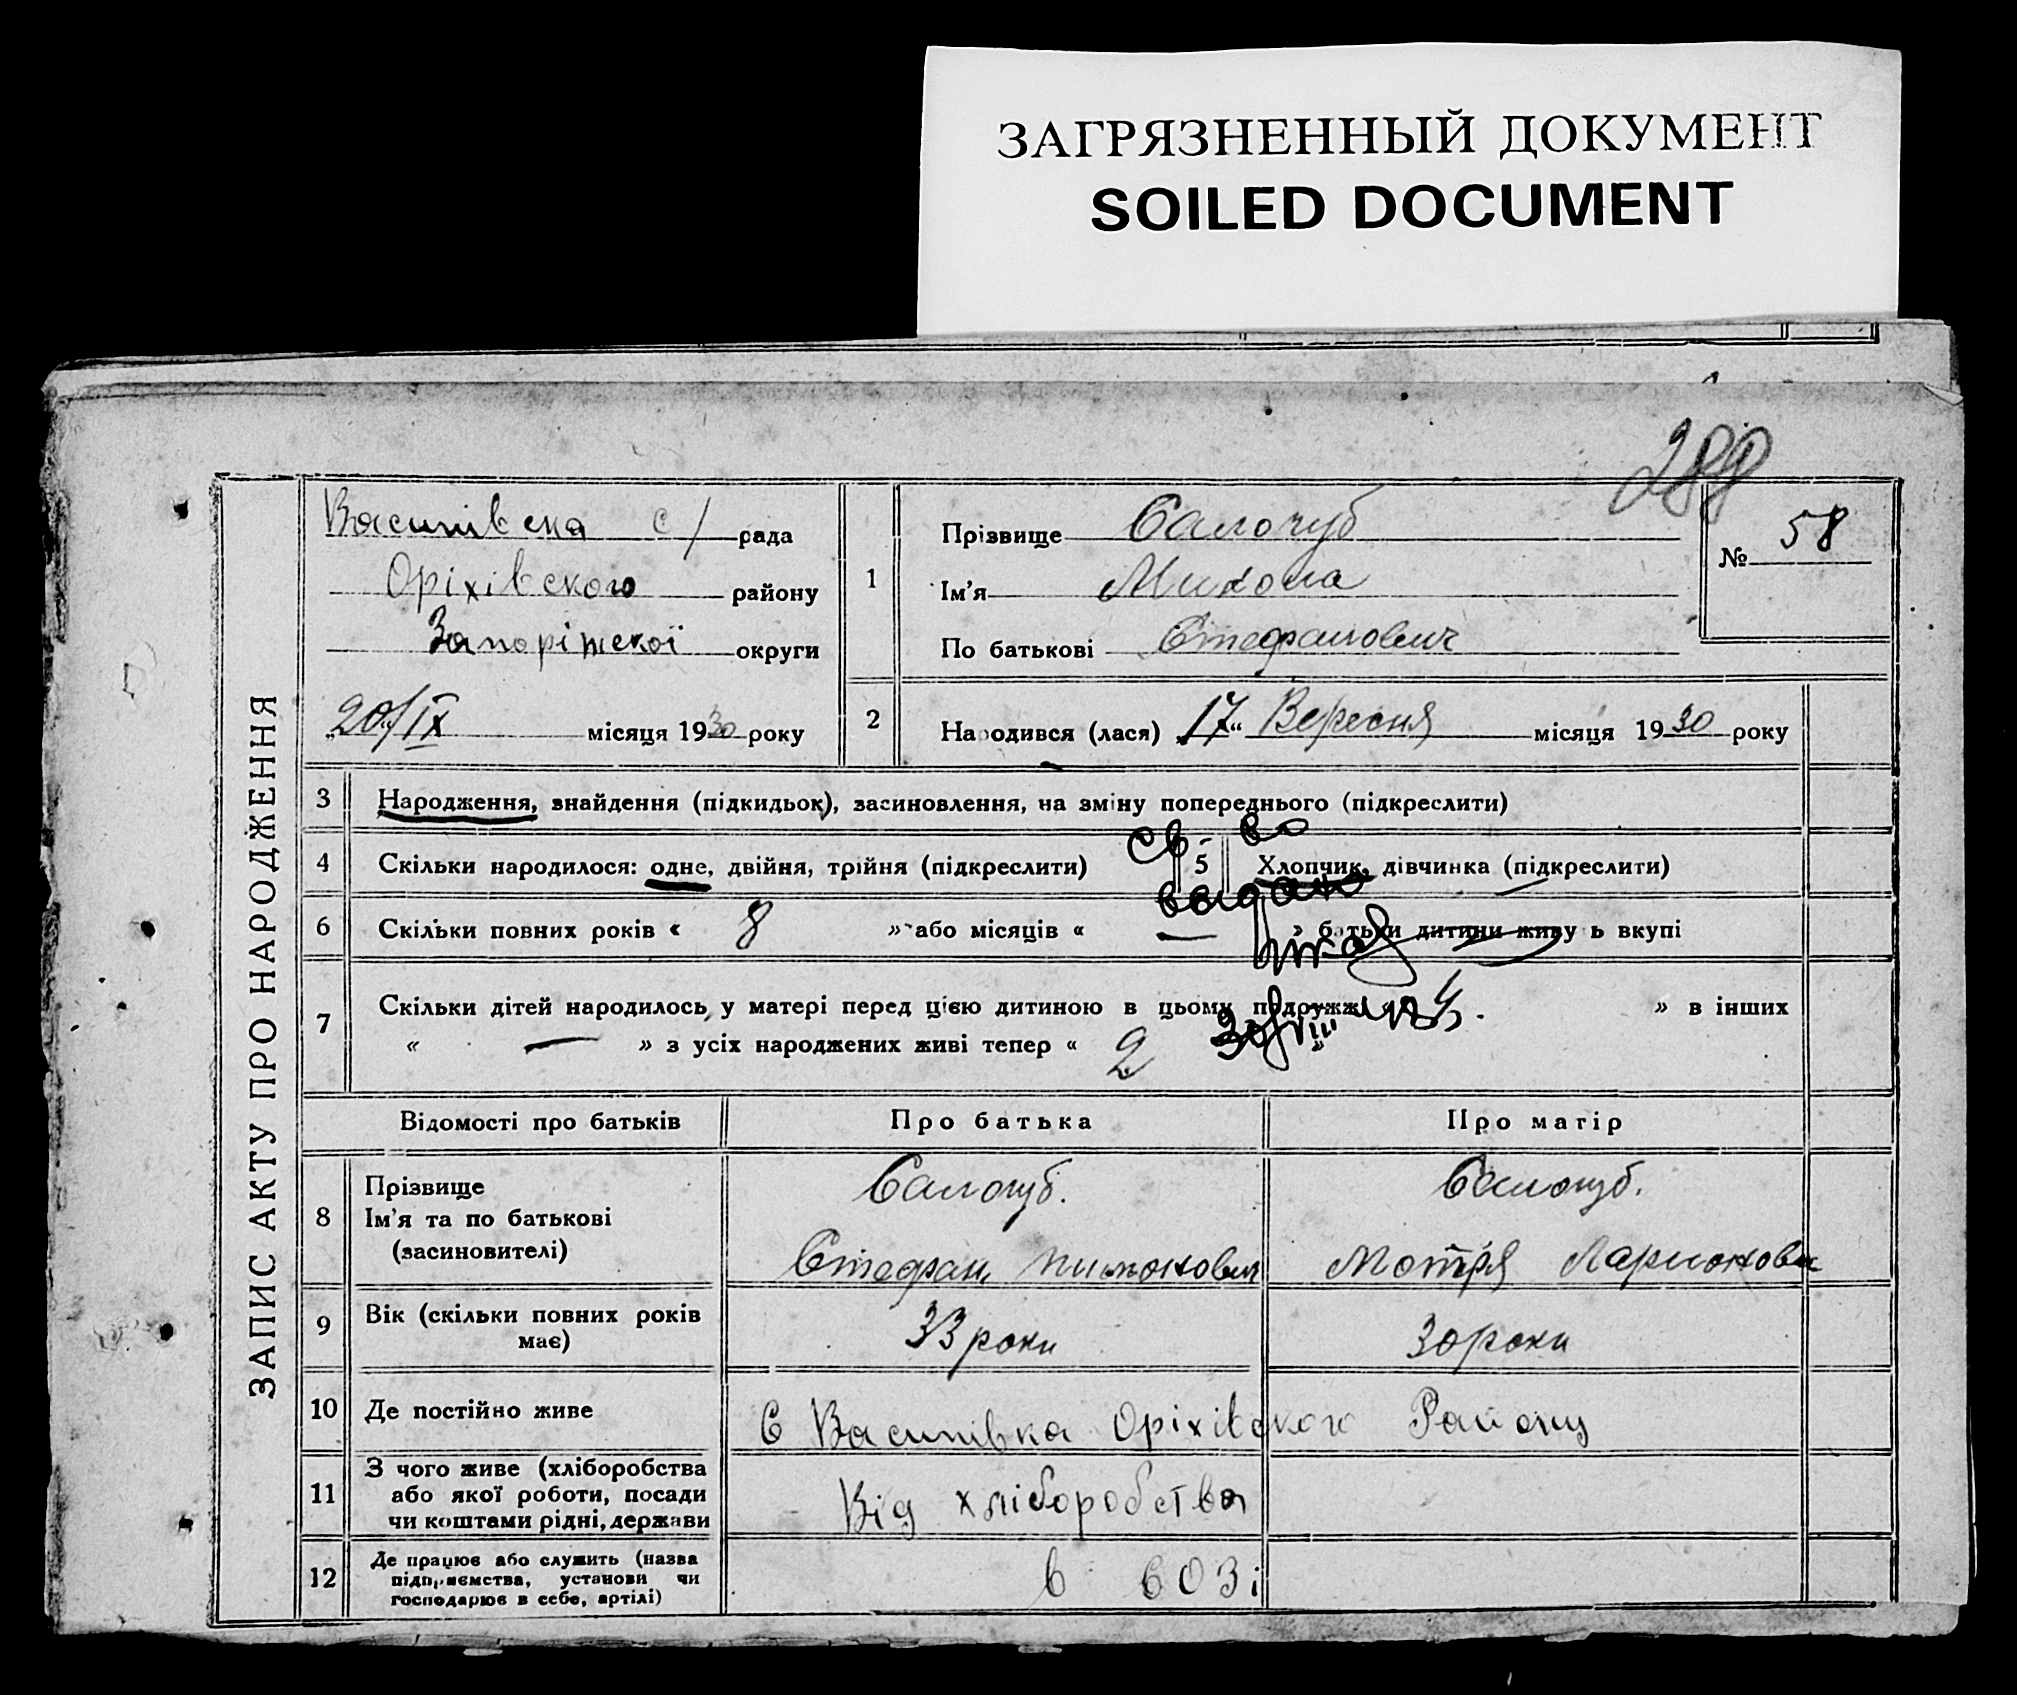 ЗАГРЯЗНЕННЫЙ ДОКУМЕНТ
SOILED DOCUMENT
288
ЗАПИС АКТУ ПРО НАРОДЖЕННЯ
Василівська с/ рада
Оріхівського району
Запоріжської округи
„20/IX місяця 1930 року
1
Прізвище Салогуб
Ім'я Микола
По батькові Стефанович
№ 58
2
Народився (лася) „17“ Вересня місяця 1930 року
3 Народження, знайдення (підкидьок), засиновлення, на зміну попереднього (підкреслити)
4 Скільки народилося: одне, двійня, трійня (підкреслити)
5 Хлопчик, дівчинка (підкреслити)
св-во
выдано
6 Скільки повних років « 8 » або місяців « — » батьки дитини живуть вкупі
7 Скільки дітей народилось у матері перед цією дитиною в цьому подружжі « » в інших
« — » з усіх народжених живі тепер « 2 »
30/VIII
Відомості про батьків Про батька Про матір
8 Прізвище
Ім'я та по батькові
(засиновителі)
Салогуб. Салогуб.
Стефан Мотря
9 Вік (скільки повних років
має)
33 роки 30 роки
10 Де постійно живе С Василівка Оріхівского Району
11 З чого живе (хліборобства
або якої роботи, посади
чи коштами рідні, держави
Від хліборобства
12 Де працює або служить (назва
підприємства, установи чи
господарює в себе, артілі)
в СОЗі